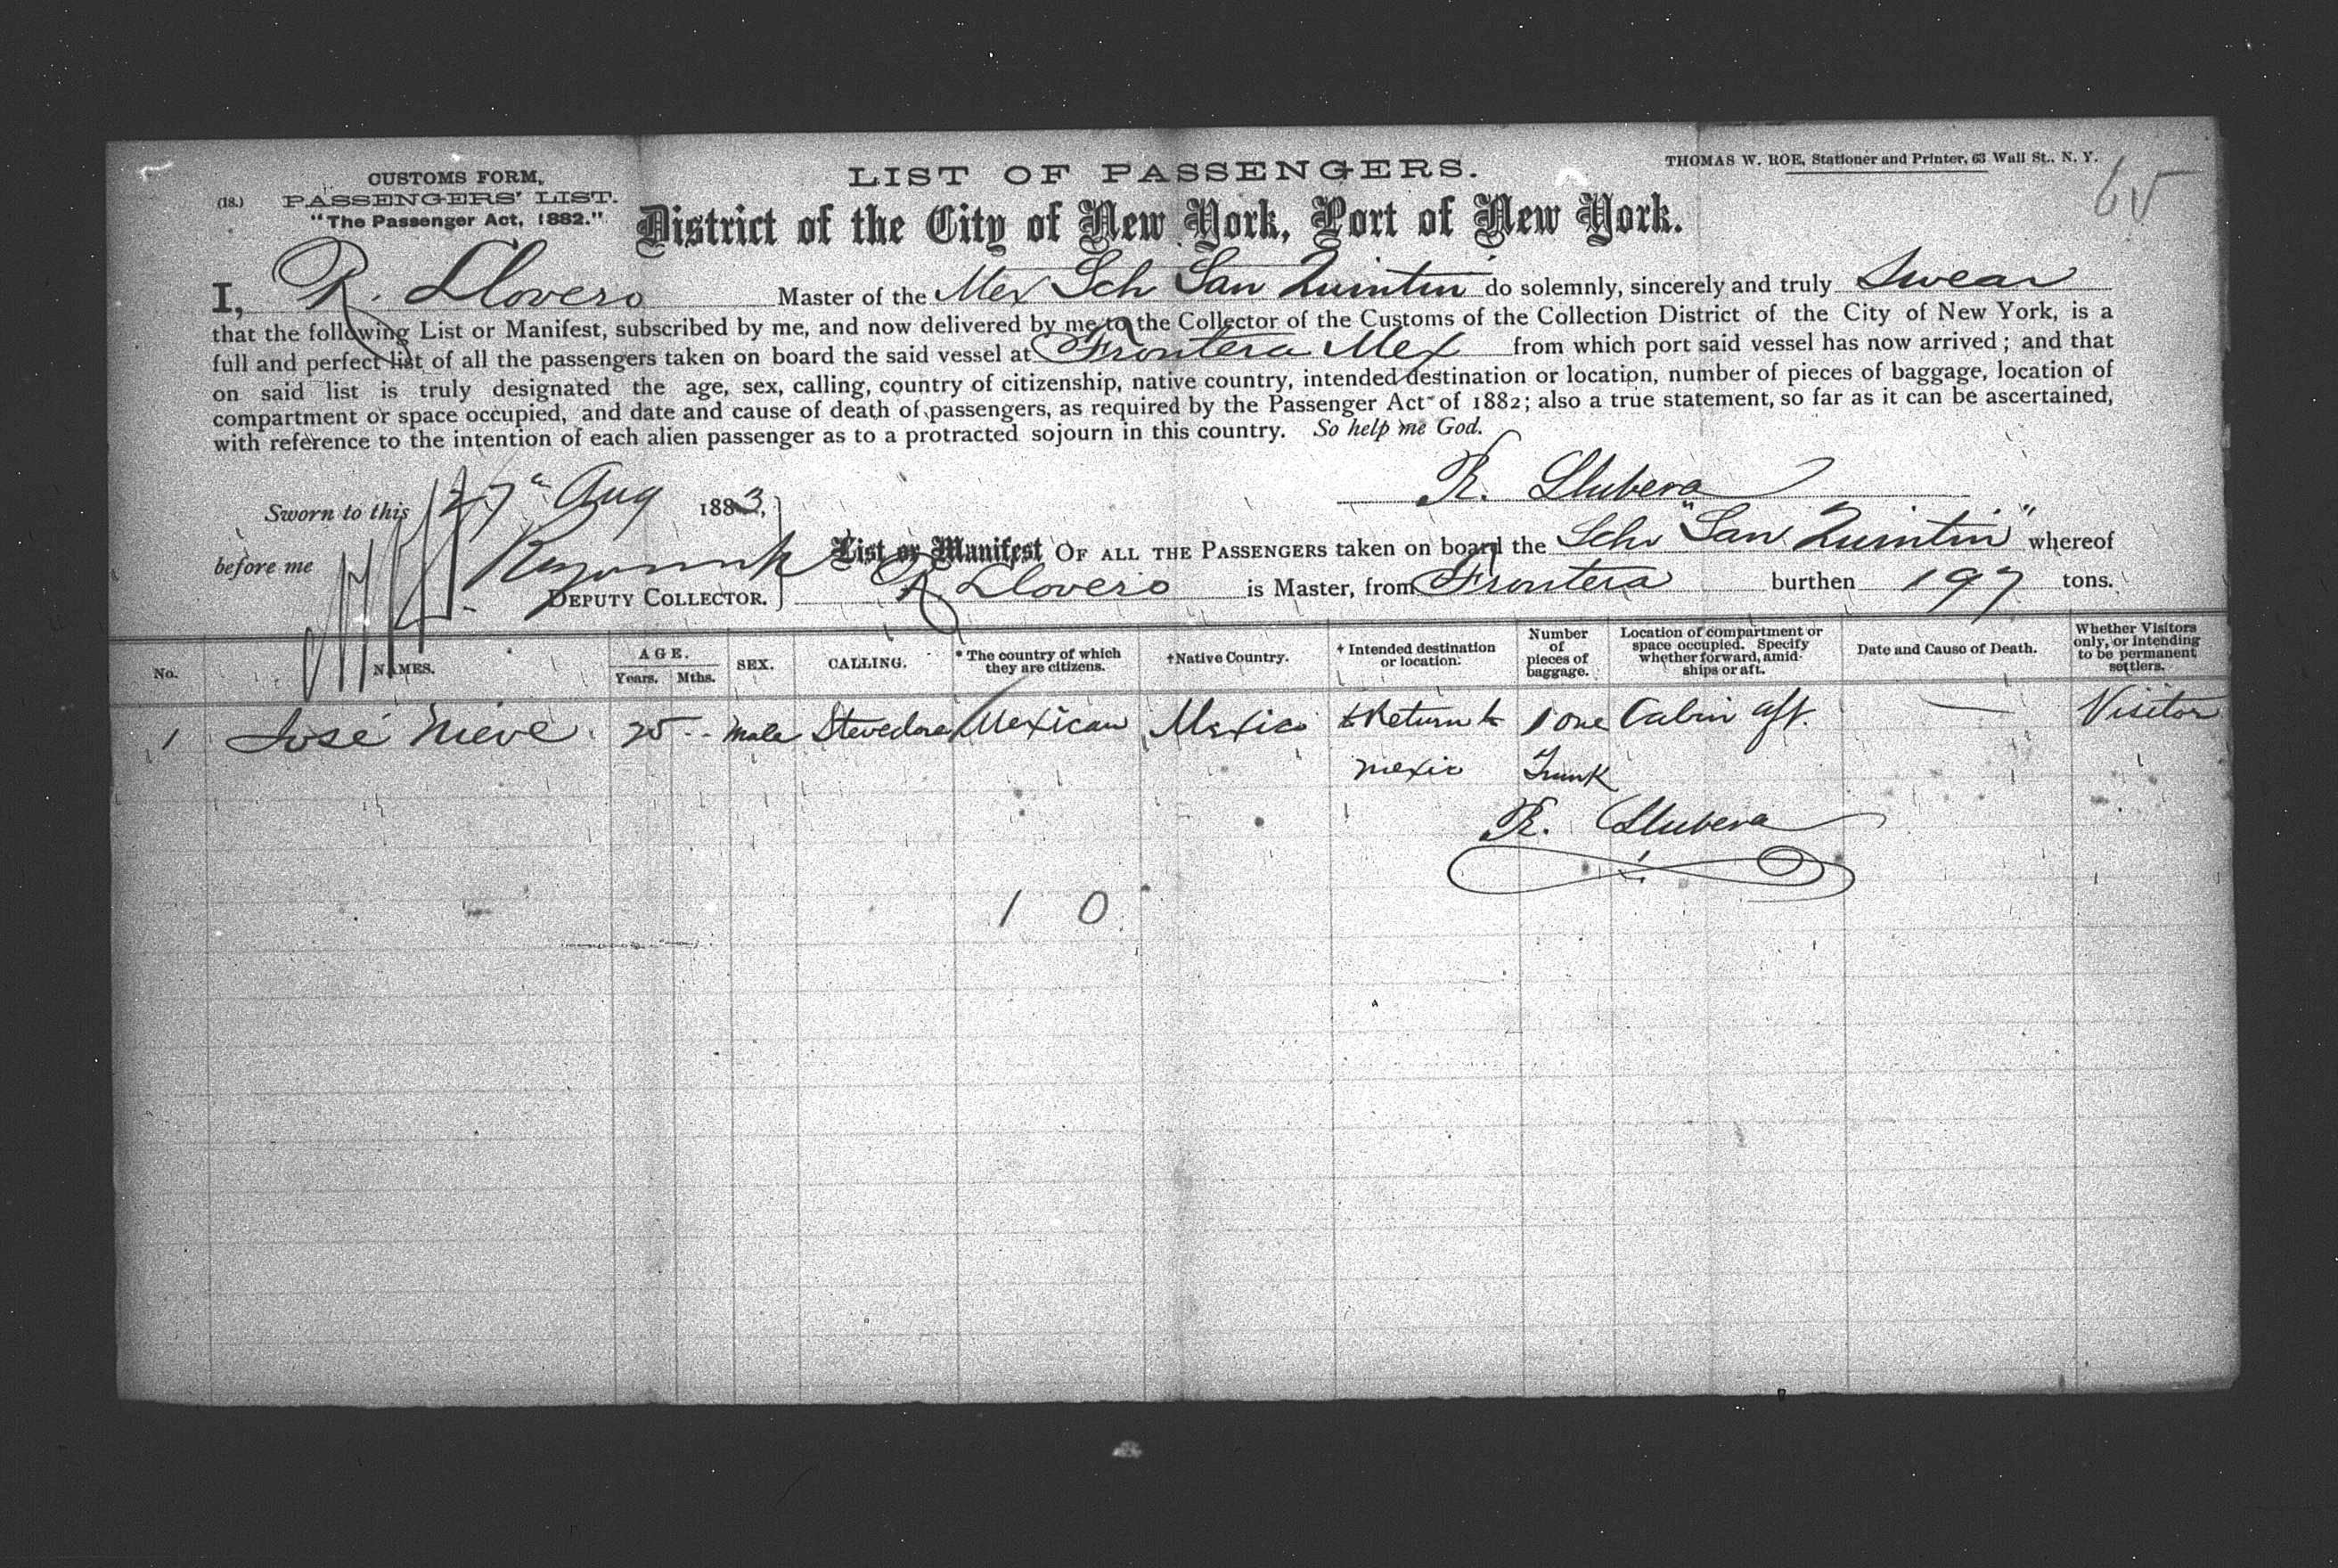 CUSTOMS FORM,
(18.) PASSENGERS' LIST.
"The Passenger Act, 1882."
LIST OF PASSENGERS.
THOMAS W. ROE, Stationer and Printer, 63 Wall St., N. Y.
65
District of the City of New York, Port of New York.
I, R. Llovero Master of the Mex Sch San Quintin do solemnly, sincerely and truly Swear
that the following List or Manifest, subscribed by me, and now delivered by me to the Collector of the Customs of the Collection District of the City of New York, is a
full and perfect list of all the passengers taken on board the said vessel at Frontera Mex from which port said vessel has now arrived; and that
on said list is truly designated the age, sex, calling, country of citizenship, native country, intended destination or location, number of pieces of baggage, location of
compartment or space occupied, and date and cause of death of passengers, as required by the Passenger Act of 1882; also a true statement, so far as it can be ascertained,
with reference to the intention of each alien passenger as to a protracted sojourn in this country. So help me God.
R. Llubera
Sworn to this 27" Aug 1883,
before me
DEPUTY COLLECTOR.
List or Manifest OF ALL THE PASSENGERS taken on board the Schr "San Quintin" whereof
R. Llovero is Master, from Frontera burthen 197 tons.
No. NAMES. AGE. Years. Mths. SEX. CALLING. * The country of which they are citizens. †Native Country. † Intended destination or location. Number of pieces of baggage. Location of compartment or space occupied. Specify whether forward, amidships or aft. Date and Cause of Death. Whether Visitors only, or intending to be permanent settlers.
1 José Nieve. 25 -- male Stevedore Mexican Mexico to Return to 1 one Cabin aft. — Visitor
Mexico Trunk
R. Llubera
1 0